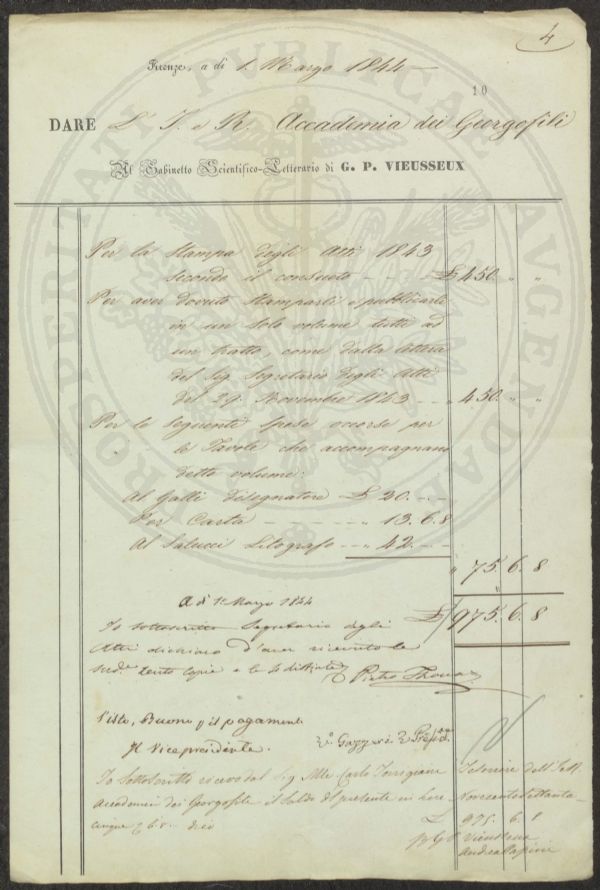 4
Firenze, a dì 1. Marzo 1844
10
DARE L' I. e R. Accademia dei Georgofili
Al Gabinetto Scientifico-Letterario di G. P. VIEUSSEUX
Per la Stampa degli Atti 1843
secondo il consueto - - - £ 450. " "
Per aver dovuto stamparli e pubblicarli
in un solo volume tutti ad
un tratto, come dalla lettera
del Sig. Segretario degli Atti
del 29. Novembre 1843 - - " 450. " "
Per le seguenti spese occorse per
le Tavole che accompagnano
detto volume:
Al Galli disegnatore £ 20. - -
Per Carta - - - - " 13. 6. 8
Al Salucci Litografo - - " 42. - -
" 75. 6. 8
£ 975. 6. 8
A dì 1° Marzo 1844
Io sottoscritto Segretario degli
Atti dichiaro d'aver ricevuto le
sudde cento copie e le
Pietro Thouar
Visto, Buono p il pagamento
Il Vicepresidente.
Io Sottoscritto ricevo dal Sig Carlo Torrigiani Tesoriere dell'
Accademia dei Georgofili il Saldo del presente in Lire Novecentosettanta
cinque 6. 8. dico £ 975. 6. 8
p G P Vieusseux
Andrea Papini
PROSPERITATI PVBLICAE AVGENDAE